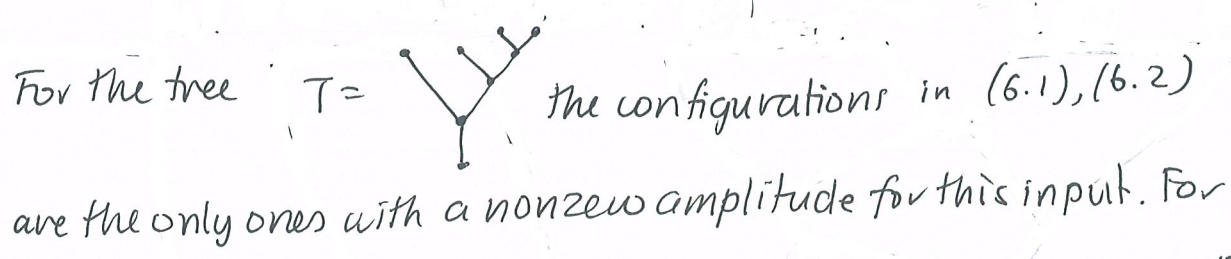 For the tree T = the configurations in (6.1), (6.2)
are the only ones with a nonzero amplitude for this input. For